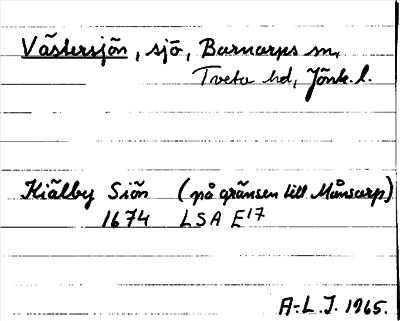 Västersjön, sjö, Barnarps sn,
Tveta hd, Jönk. l.
Kiälby Siön (på gränsen till Månsarp)
1674 LSA E17
A.-L. J. 1965.